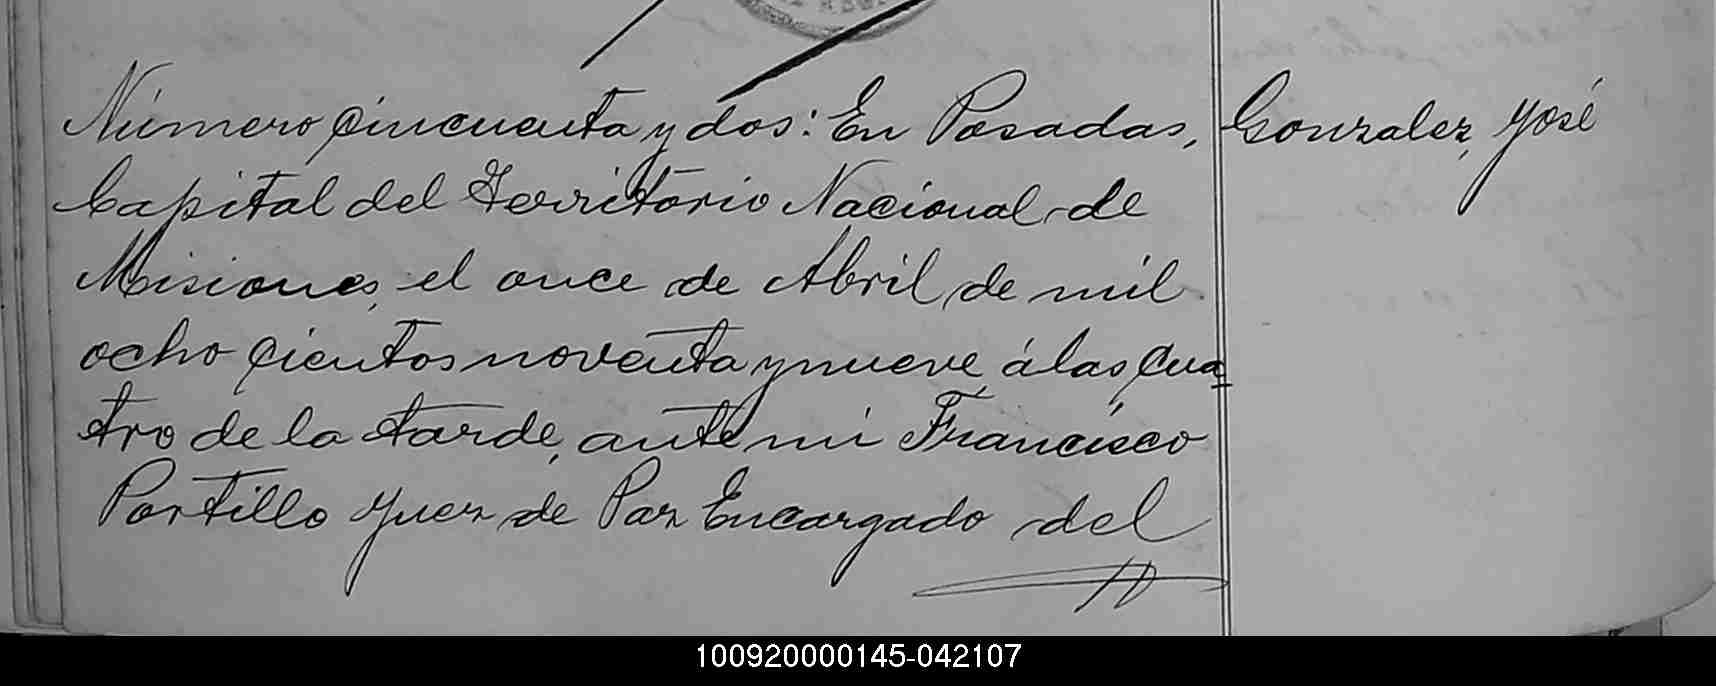 Número cincuenta y dos: En Posadas,
Capital del Territorio Nacional de
Misiones, el once de Abril de mil
ocho cientos noventa y nueve, á las cua
tro de la tarde, ante mi Francisco
Portillo Juez de Paz Encargado del
Gonzalez, José
100920000145-042107